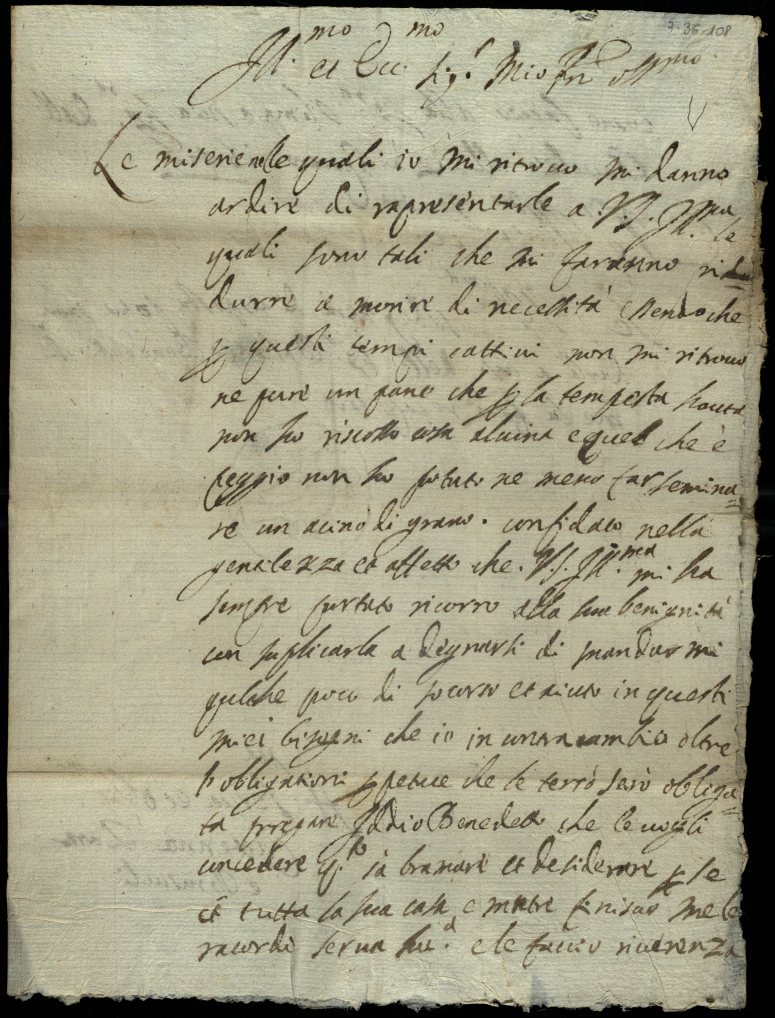 7-36-108
Ill.mo et Ecc.mo Sig.r Mio Prn Oss.mo
Le miserie nelle quali io mi ritrovo mi danno
ardire di rapresentarle a V.S. Ill.ma le
quali sono tali che mi faranno rid=
durre a morire di necessità essendo che
p questi tempi cattivi non mi ritrovo
ne pure un pane che p la tempesta hauta
non ho riscosso cosa alcuna e quel che è
peggio non ho potuto ne meno far semina=
re un acino di grano. confidato nella
gentilezza et affetto che V.S. Ill.ma mi ha
sempre portato ricorro alla sua benignità
con suplicarla a degnarsi di mandar mi
qulche poco di socorso et aiuto in questi
miei bisogni che io in contracambio oltre
l'obligationi ppetue che le terrò serò obliga=
ta pregare Iddio Benedetto che le vogli
concedere q.to sa bramare et desiderare p se
et tutta la sua casa e mentre finisco me le
racordo serva su.a e le faccio riverenza